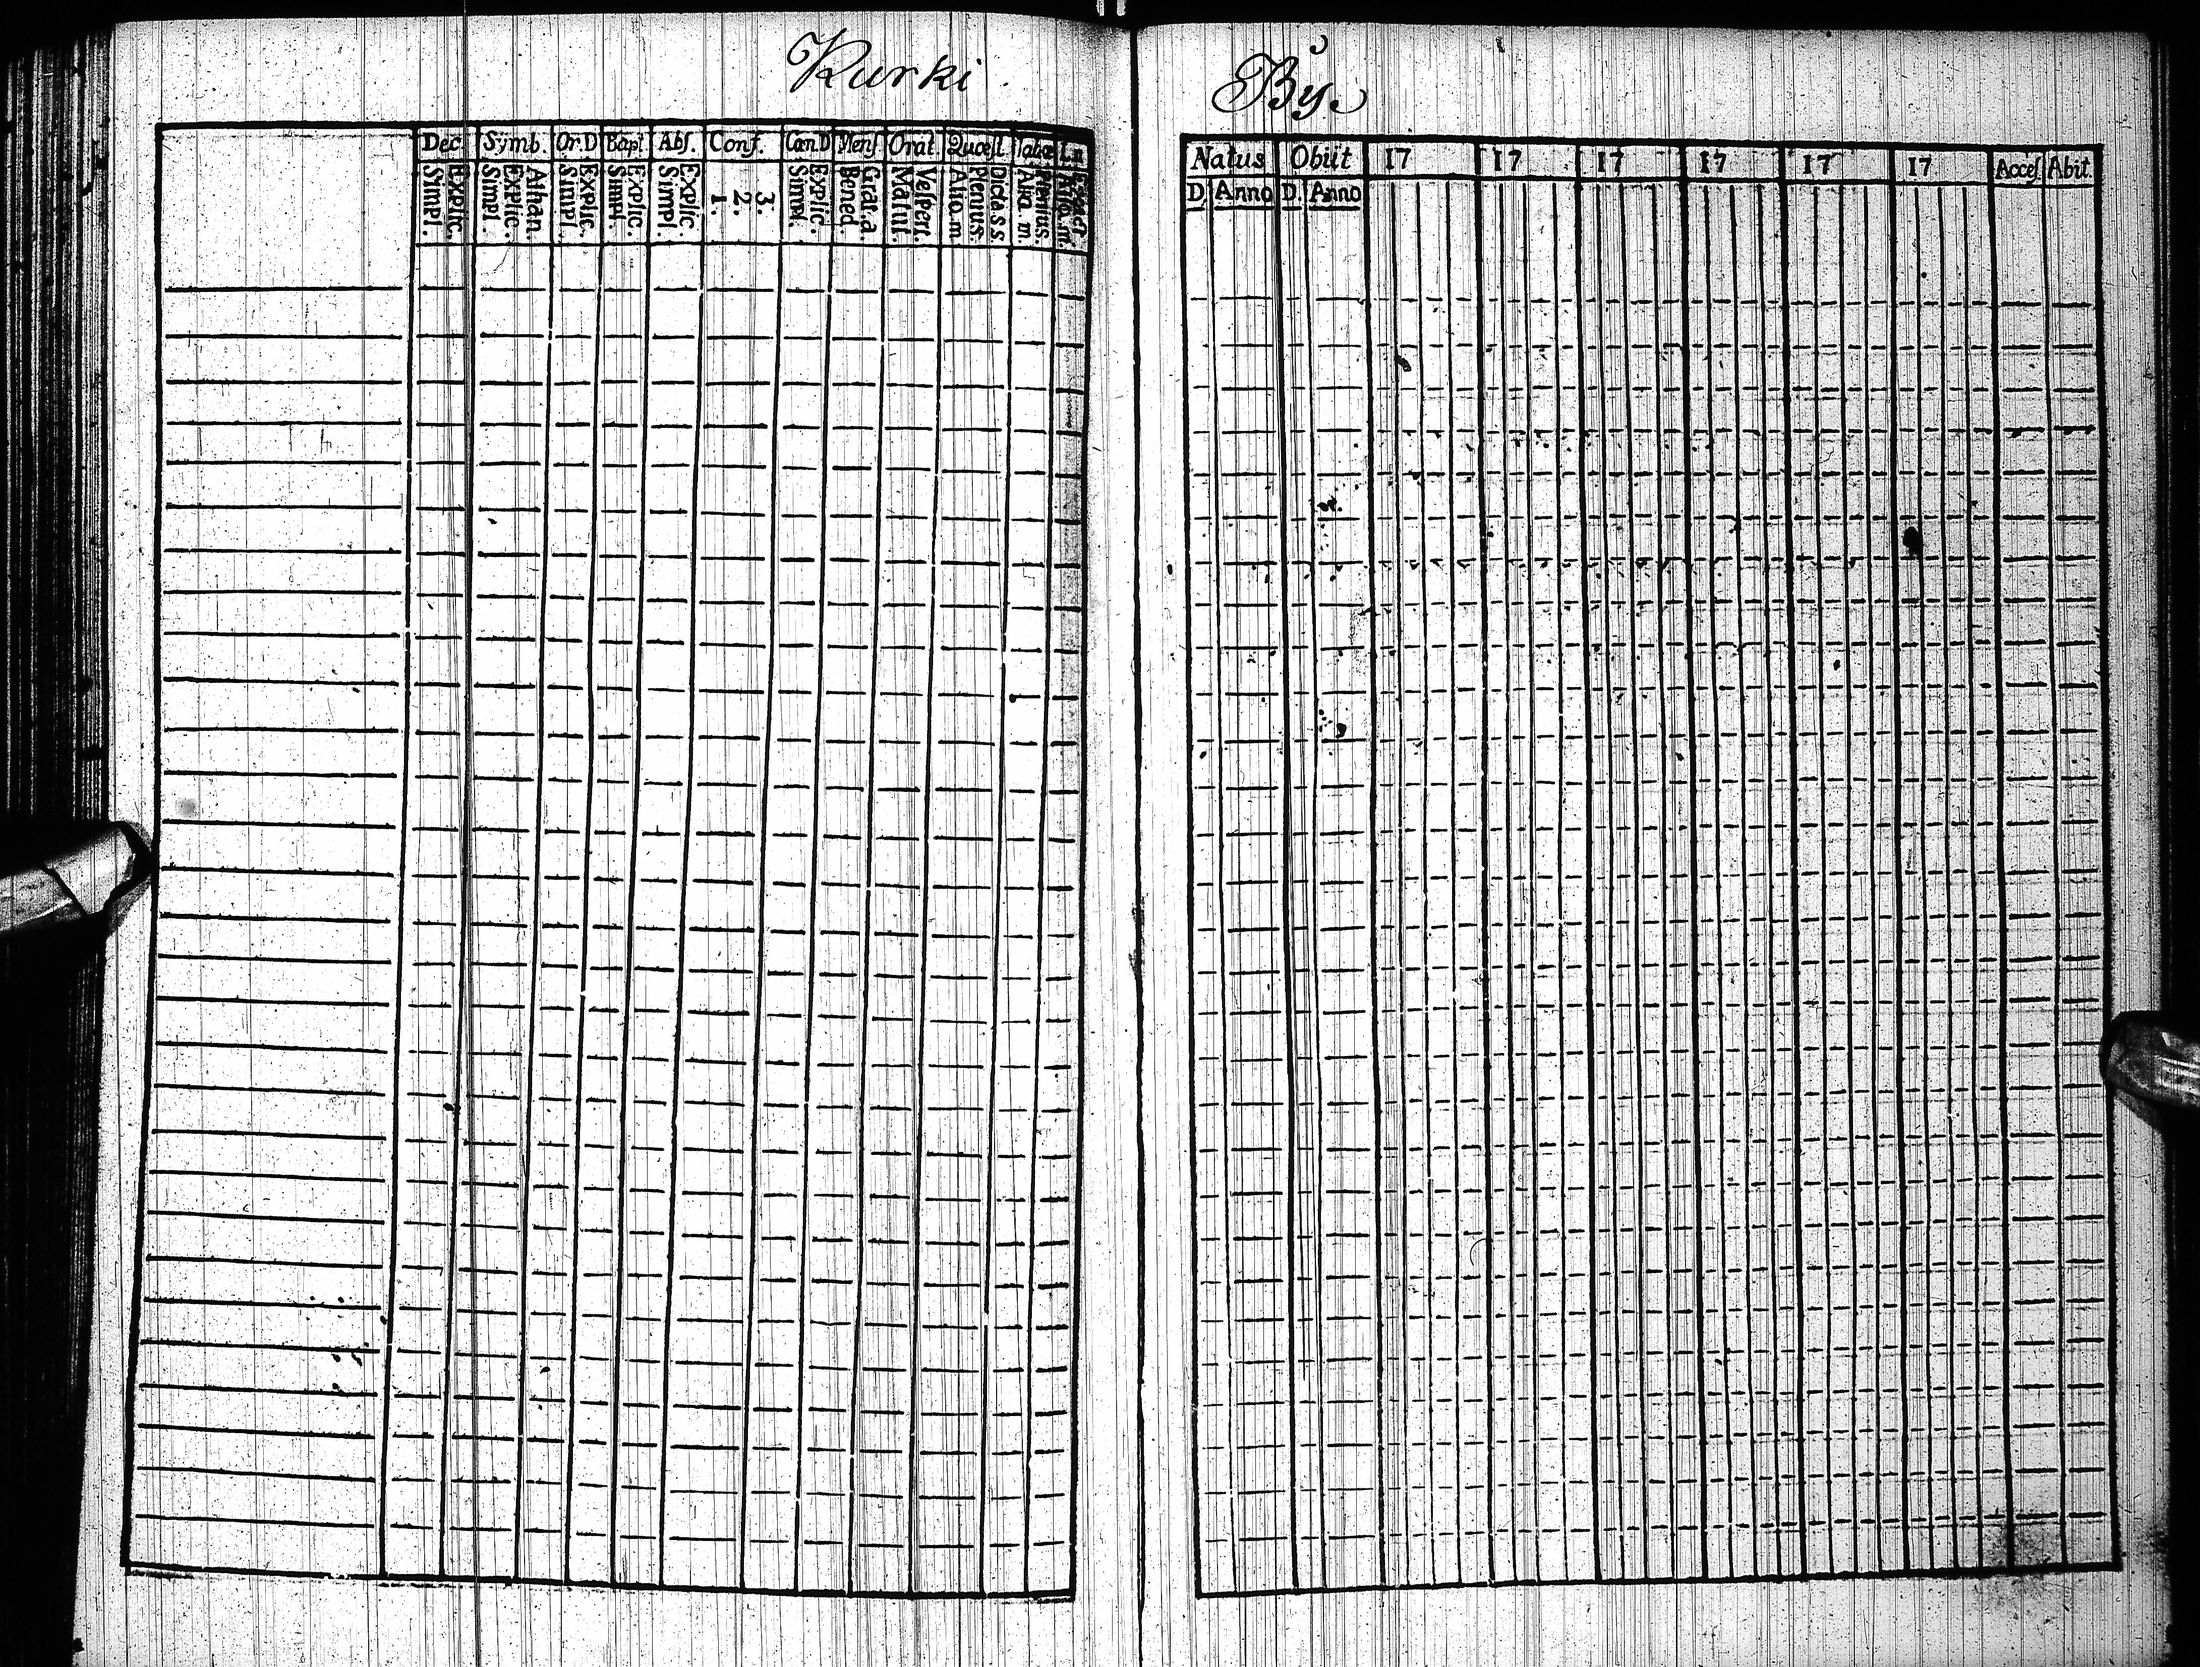 Kurki By.
Dec. Symb. Or.D Bapt. Abſ. Conf. Can.D Menſ Orat. Quæſt. Tabæ
Simpl. Explic. Simpl. Explic. Athan. Simpl. Explic. Simpl. Explic. Simpl. Explic. 1. 2. 3. Simpl. Explic. Bened. Grat.a. Matut. Veſpert. Alio.m Plenius. Dicta.s.s Aka.m. Plenius. Alio.m.
Natus Obiit 17 17 17 17 17 17 Acceſ. Abit.
D Anno D. Anno